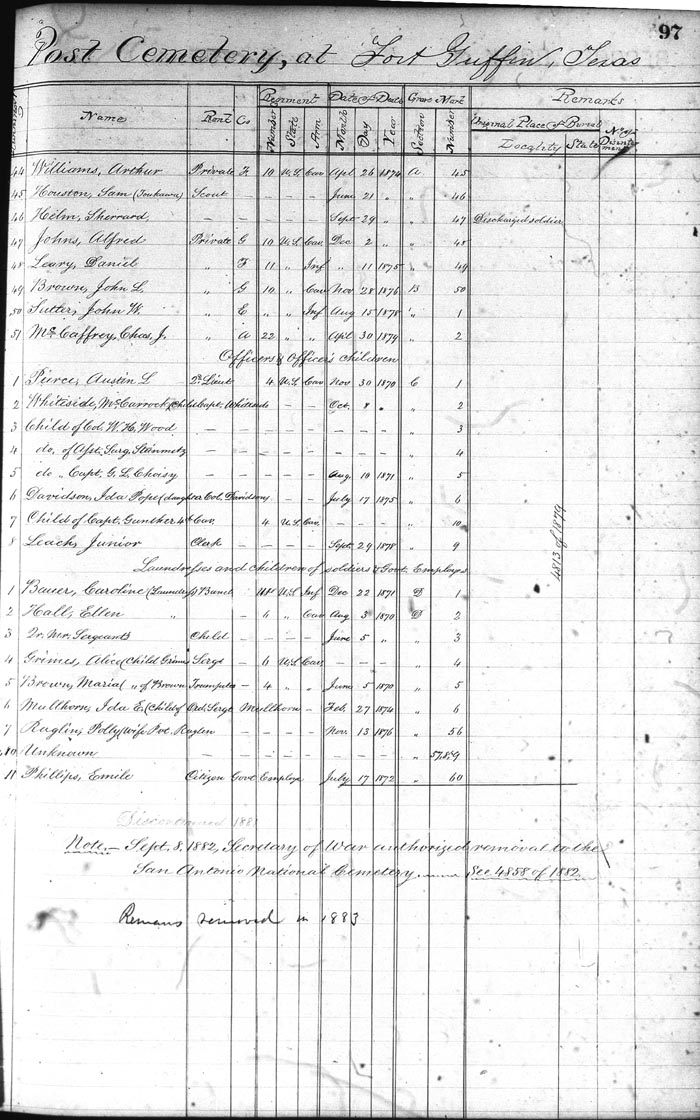 97
Post Cemetery, at Fort Griffin, Texas
Name Rank Co Regiment Date of Death Grave Mark Remarks
Number State Arm Month Day Year Section Number Original Place of Burial
Locality State
44 Williams, Arthur Private F 10 U.S. Cav April 26 1874 A 45
45 Houston, Sam (Tonkawa) Scout — — — — June 21 " " 46
46 Helm, Sherrard, — — — — — Sept 29 " " 47 Discharged soldier
47 Johns, Alfred Private G 10 U.S. Cav Dec 2 " " 48
48 Leary, Daniel " F 11 " Inf " 11 1875 " 49
49 Brown, John L. " G 10 " Cav Nov 28 1876 B 50
50 Sutter, John W. " E " " Inf Aug 15 1878 " 1
51 McCaffrey, Chas, J. " A 22 " " Apl 30 1879 " 2
Officers & Officers children
1 Pierce, Austin L 2d Lieut 4 U.S. Cav Nov 30 1870 C 1
2 Whiteside, McCarrock (Child Capt. Whiteside — — Oct. 8 " " 2
3 Child of Col. W. H. Wood — — — — — — — — " 3
4 do. of Asst. Surg. Steinmetz — — — — — — — — " 4
5 do " Capt. G. L. Choisy — — — — — Aug. 10 1871 " 5
6 Davidson, Ida Pope (daughter Col. Davidson) — — — July 17 1875 " 6
7 Child of Capt. Gunther 4th Cav. 4 U.S. Cav. — — — " 10
8 Leach, Junior Clerk — — — — Sept. 29 1878 " 9
4813 of 1879
Laundresses and children of soldiers & Govt. Employes
1 Bauer, Caroline (Laundress) Band 11th U.S. Inf Dec 22 1871 D 1
2 Hall, Ellen " — 4 " Cav Aug 3 1870 D 2
3 Dr. Mr. Sergeants Child — — — — June 5 " " 3
4 Grimes, Alice (Child Grimes Sergt — 6 U.S. Cav — — — " 4
5 Brown, Maria ( " of Brown Trumpeter — 4 " " June 5 1870 " 5
6 Mullhorn, Ida E. (Child of Ord. Sergt Mullhorn — Feb. 27 1874 " 6
7 Raglin, Polly (wife Pvt. Raglen — — — — Nov. 13 1876 " 56
10 Unknown — — — — — — — — " 57,8,9
11 Phillips, Emile Citizen Govt Employe July 17 1872 " 60
Discontinued 1881
Note.— Sept. 8, 1882, Secretary of War authorized removal to the
San Antonio National Cemetery. See 4858 of 1882.
Remans removed in 1883